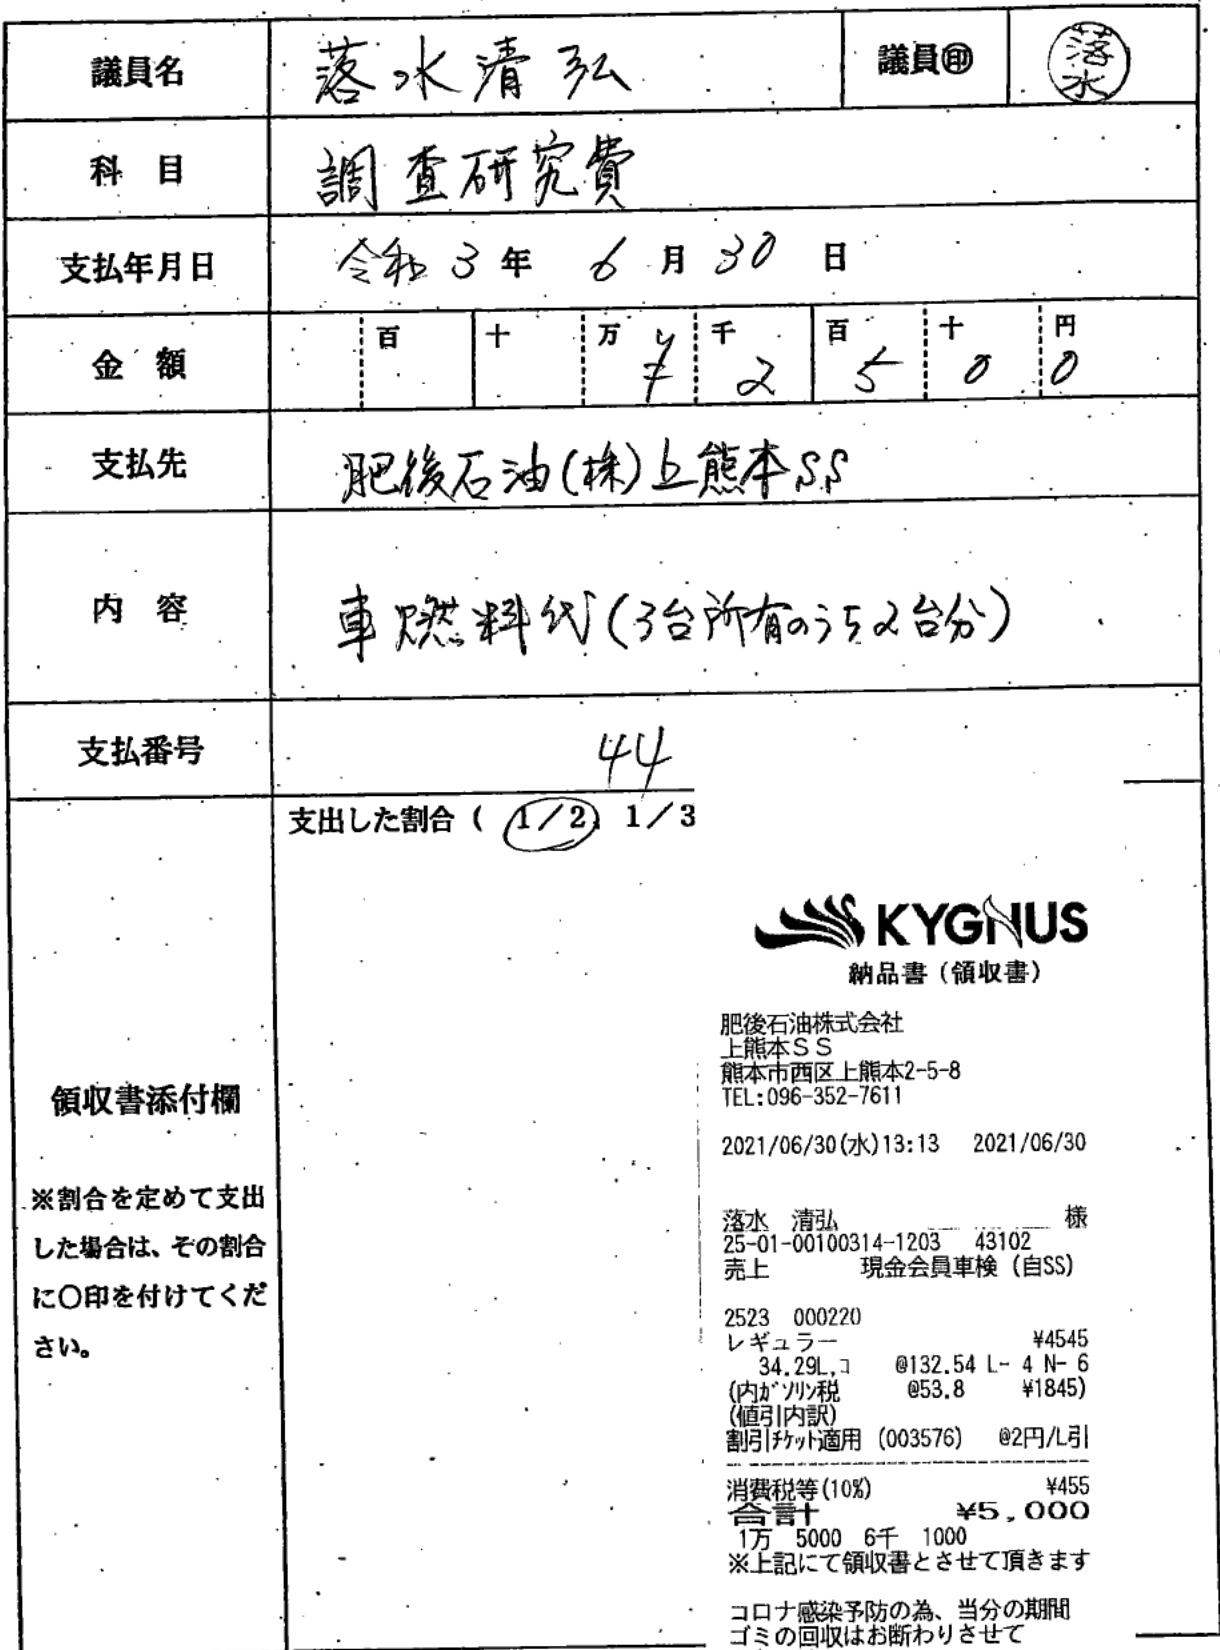 議員名 落水清弘 議員㊞ 落水
科 目 調査研究費
支払年月日 令和 3 年 6 月 30 日
金 額 百 十 万 ¥ 千 2 百 5 十 0 円 0
支払先 肥後石油(株)上熊本SS
内 容 車燃料代(3台所有のうち2台分)
支払番号 44
支出した割合 ( 1/2) 1/3
KYGNUS
納品書(領収書)
肥後石油株式会社
上熊本SS
熊本市西区上熊本2-5-8
TEL:096-352-7611
2021/06/30(水)13:13 2021/06/30
落水 清弘 様
25-01-00100314-1203 43102
売上 現金会員車検(自SS)
2523 000220
レギュラー ¥4545
34.29L,コ @132.54 L- 4 N- 6
(内ガソリン税 @53.8 ¥1845)
(値引内訳)
割引チケット適用 (003576) @2円/L引
消費税等(10%) ¥455
合計 ¥5,000
1万 5000 6千 1000
※上記にて領収書とさせて頂きます
コロナ感染予防の為、当分の期間
ゴミの回収はお断わりさせて
領収書添付欄
※割合を定めて支出
した場合は、その割合
に〇印を付けてくだ
さい。